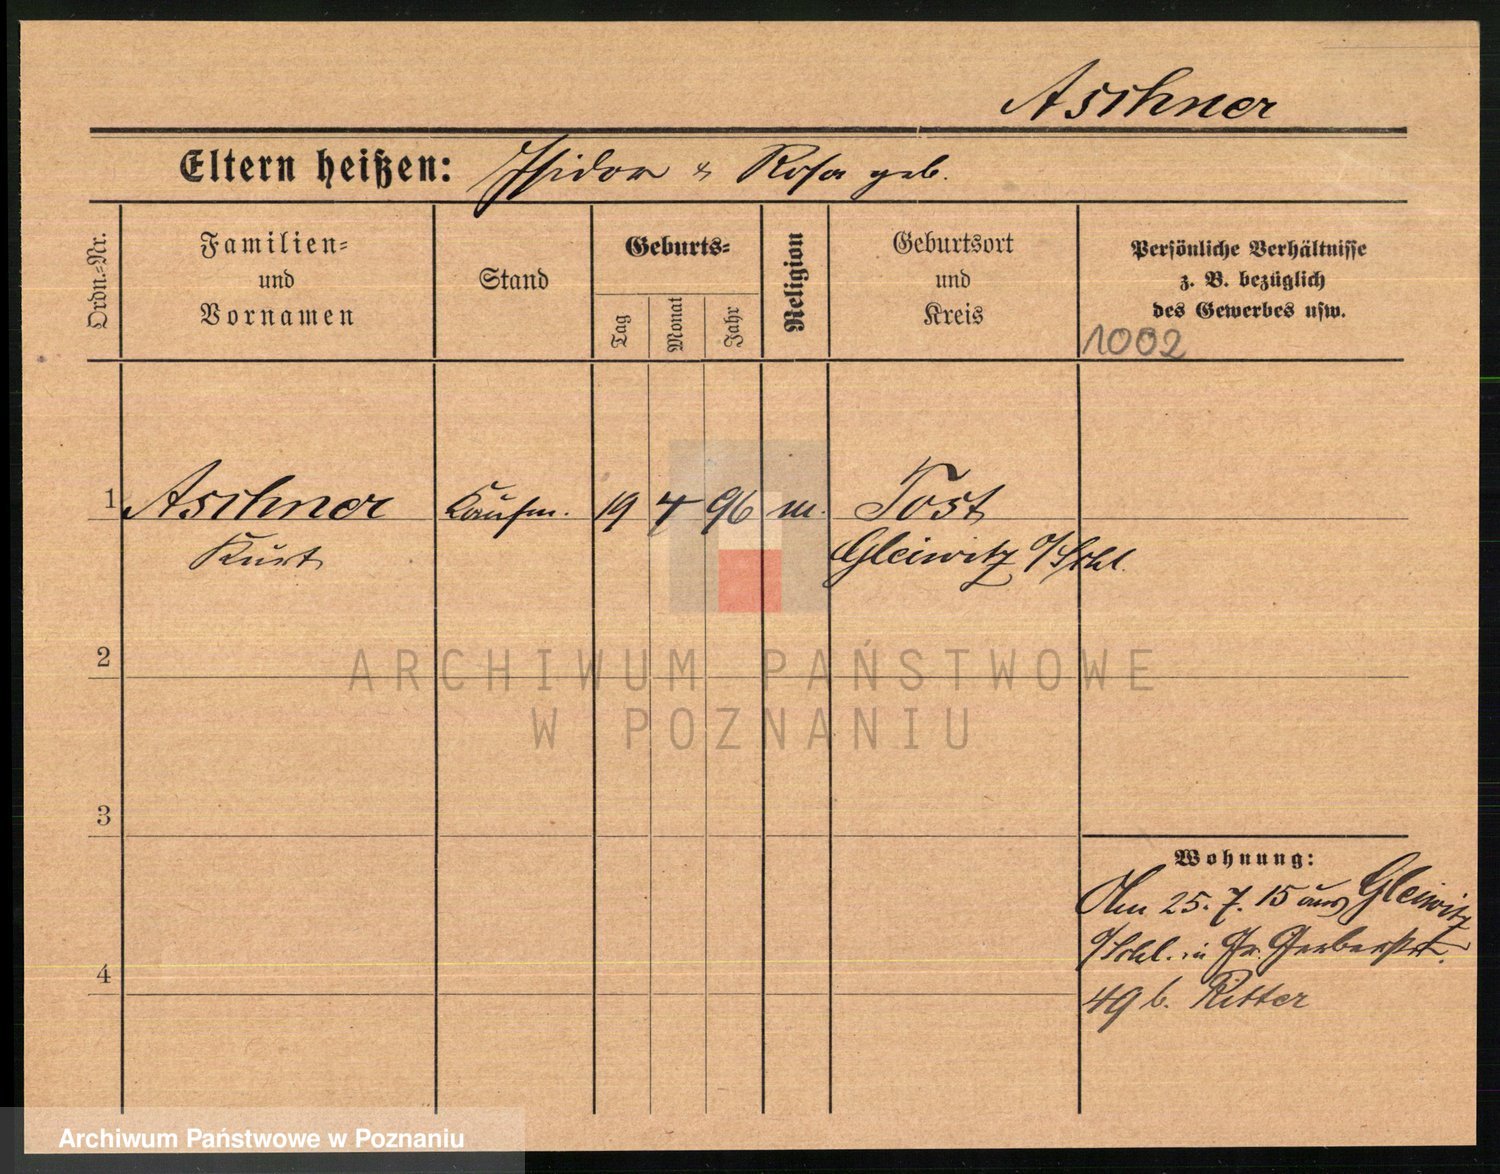 Aschner
Eltern heißen: Isidor & Rosa geb.
Ordn.-Nr.
Familien-
und
Vornamen
Stand
Geburts-
Tag
Monat
Jahr
Religion
Geburtsort
und
Kreis
Persönliche Verhältnisse
z. B. bezüglich
des Gewerbes usw.
1002
1 Aschner Kaufm. 19 4 96 m. Tost
Kurt Gleiwitz O/Schl.
2
ARCHIWUM PAŃSTWOWE
W POZNANIU
3
Wohnung:
Am 25. 7. 15 aus Gleiwitz
O/Schl. in Gr. Gerberstr.
4
49 b. Ritter
Archiwum Państwowe w Poznaniu